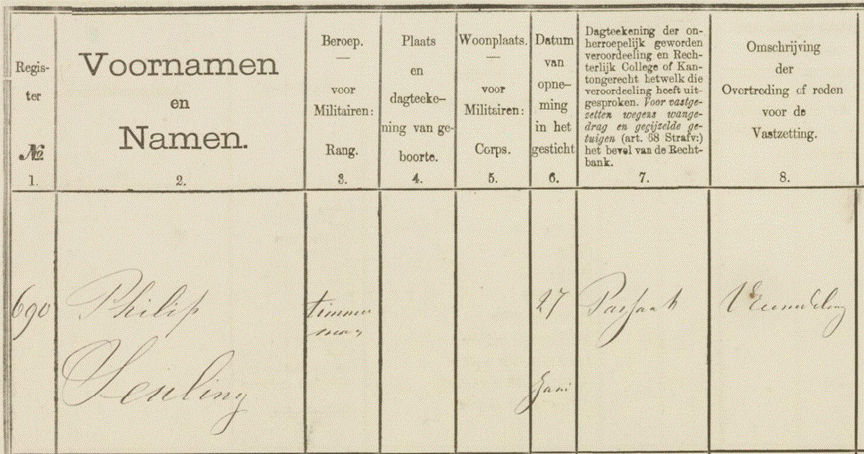 Regis-
ter
No.
1.
Voornamen
en
Namen.
2.
Beroep.
—
voor
Militairen:
Rang.
3.
Plaats
en
dagteeke-
ning van ge-
boorte.
4.
Woonplaats.
—
voor
Militairen:
Corps.
5.
Datum
van
opne-
ming
in het
gesticht
6.
Dagteekening der on-
herroepelijk geworden
veroordeeling en Rech-
terlijk College of Kan-
tongerecht hetwelk die
veroordeeling heeft uit-
gesproken. Voor vastge-
zetten wegens wange-
drag en gegijzelde ge-
tuigen (art. 68 Strafv:)
het bevel van de Recht-
bank.
7.
Omschrijving
der
Overtreding of reden
voor de
Vastzetting.
8.
690
Philip
timmer
man
27
Juni
Vreemdeling